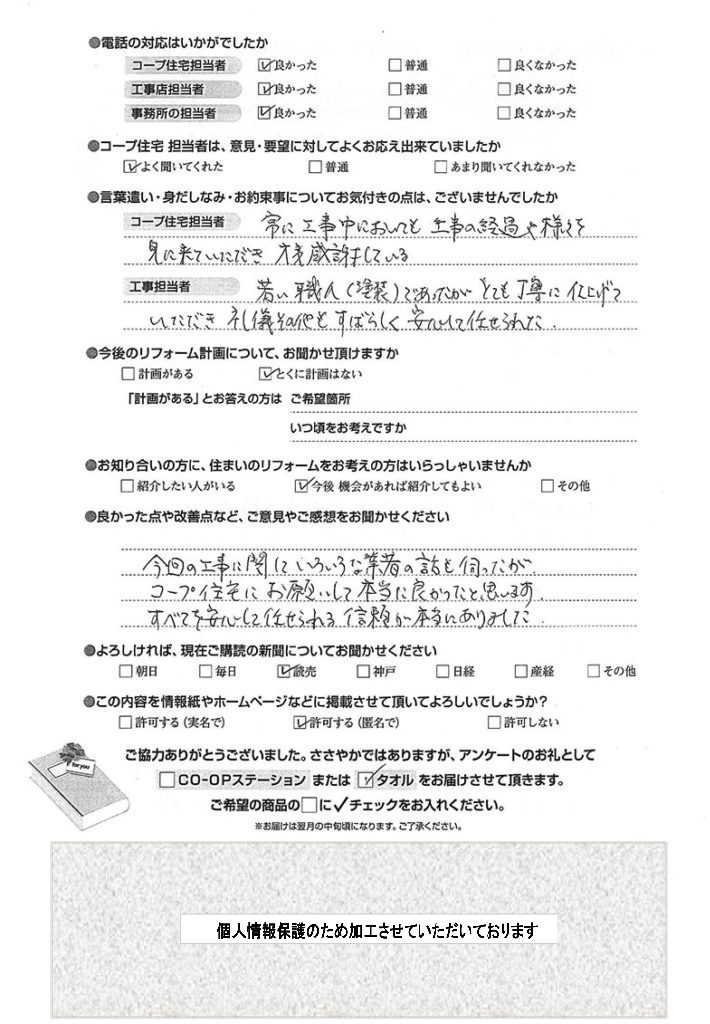 ●電話の対応はいかがでしたか
コープ住宅担当者 ☑良かった □普通 □良くなかった
工事店担当者 ☑良かった □普通 □良くなかった
事務所の担当者 ☑良かった □普通 □良くなかった
●コープ住宅 担当者は、意見・要望に対してよくお応え出来ていましたか
☑よく聞いてくれた □普通 □あまり聞いてくれなかった
●言葉遣い・身だしなみ・お約束事についてお気付きの点は、ございませんでしたか
コープ住宅担当者 常に工事中においても 工事の経過や様子を
見に来ていただき 大変感謝している
工事担当者 若い職人(塗装)であったが とても丁寧に仕上げて
いただき 礼儀その他もすばらしく 安心して任せられた.
●今後のリフォーム計画について、お聞かせ頂けますか
□計画がある ☑とくに計画はない
「計画がある」とお答えの方は ご希望箇所
いつ頃をお考えですか
●お知り合いの方に、住まいのリフォームをお考えの方はいらっしゃいませんか
□紹介したい人がいる ☑今後 機会があれば紹介してもよい □その他
●良かった点や改善点など、ご意見やご感想をお聞かせください
今回の工事に関していろいろな業者の話も伺ったが
コープ住宅にお願いして本当に良かったと思います.
すべてを安心して任せられる信頼が本当にありました.
●よろしければ、現在ご購読の新聞についてお聞かせください
□朝日 □毎日 ☑読売 □神戸 □日経 □産経 □その他
●この内容を情報紙やホームページなどに掲載させて頂いてよろしいでしょうか?
□許可する(実名で) ☑許可する(匿名で) □許可しない
for you
ご協力ありがとうございました。ささやかではありますが、アンケートのお礼として
□CO-OPステーション または ☑タオル をお届けさせて頂きます。
ご希望の商品の□に✓チェックをお入れください。
※お届けは翌月の中旬頃になります。ご了承ください。
個人情報保護のため加工させていただいております